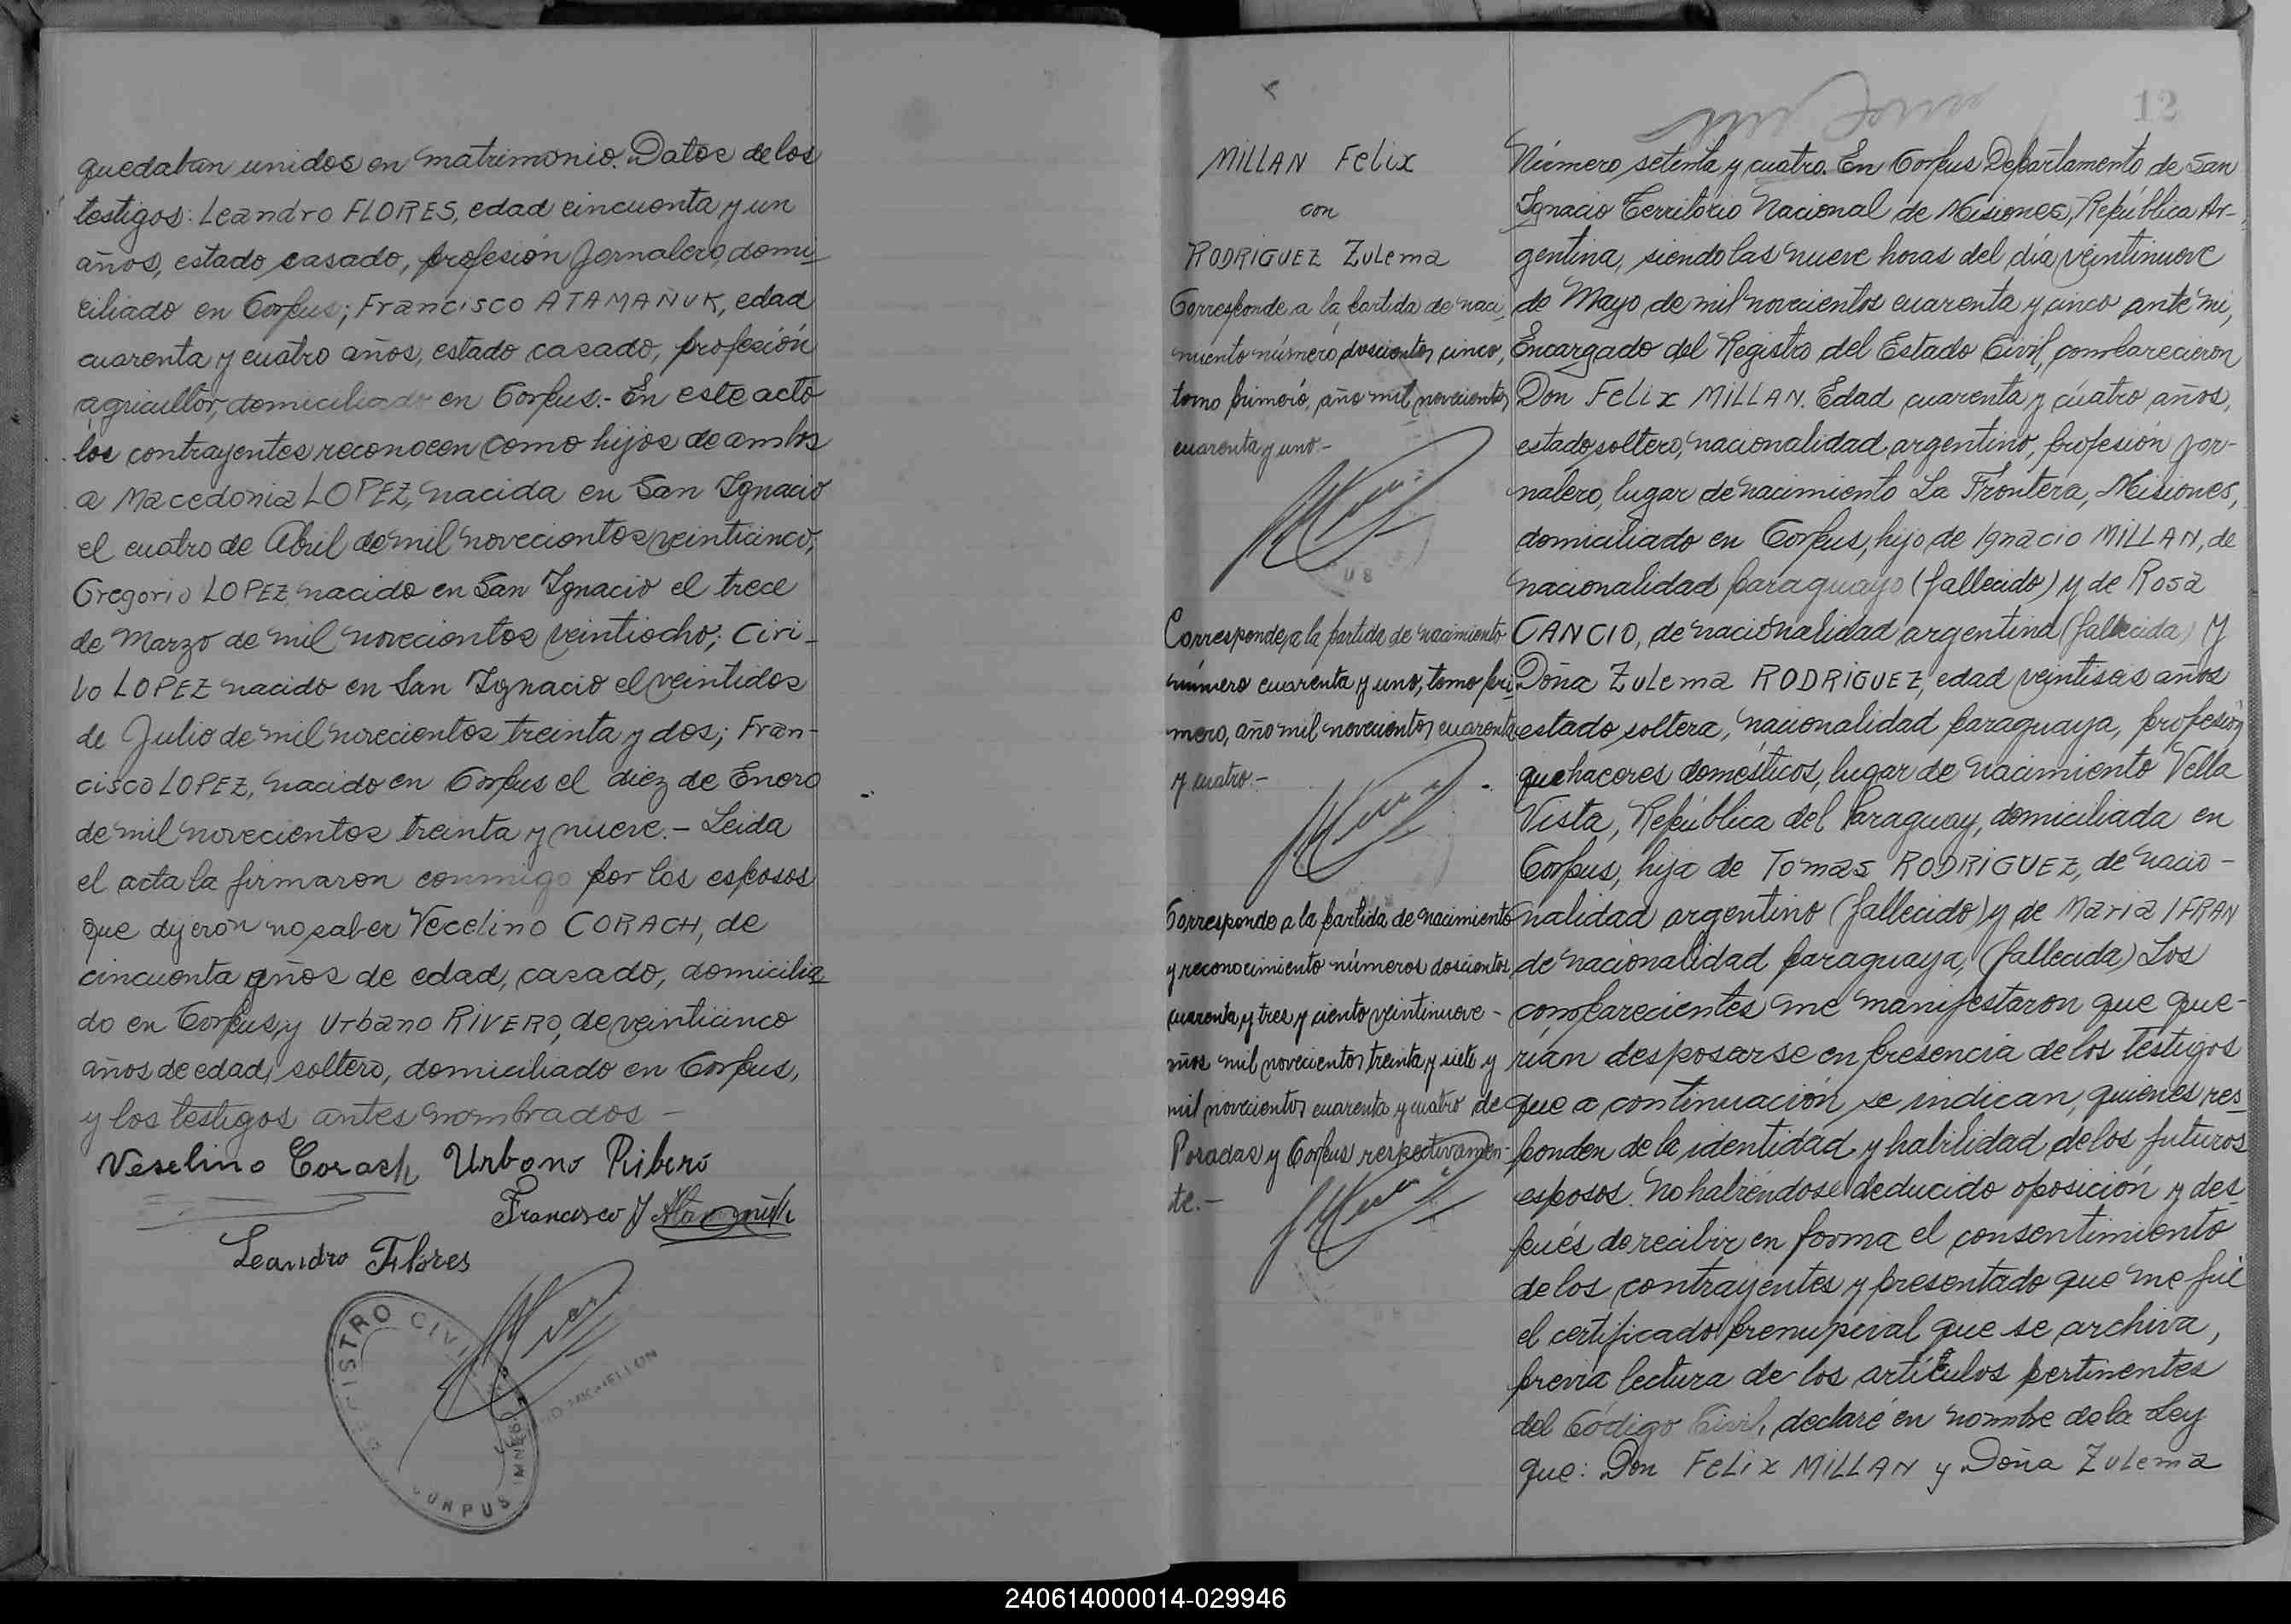 quedaban unidos en matrimonio. Datos de los
testigos: Leandro FLORES, edad cincuenta y un
años, estado casado, profesión Jornalero, domi-
ciliado en Corpus; Francisco ATAMAÑUK, edad
cuarenta y cuatro años, estado casado, profesión
agricultor, domiciliado en Corpus.- En este acto
los contrayentes reconocen como hijos de ambos
a Macedonia LOPEZ, nacida en San Ignacio
el cuatro de Abril de mil novecientos veinticinco;
Gregorio LOPEZ nacido en San Ignacio el trece
de Marzo de mil novecientos veintiocho; Ciri-
lo LOPEZ nacido en San Ignacio el veintidos
de Julio de mil novecientos treinta y dos; Fran-
cisco LOPEZ, nacido en Corpus el diez de Enero
de mil novecientos treinta y nueve.- Leida
el acta la firmaron conmigo por los esposos
que dijeron no saber Vecelino CORACH, de
cincuenta años de edad, casado, domicilia-
do en Corpus, y Urbano RIVERO, de veinticinco
años de edad, soltero, domiciliado en Corpus,
y los testigos antes nombrados -
Veselino Corach Urbano Ribero
Francisco Atamañuk
Leandro Flores
CIVIL
CORPUS
12
MILLAN Felix
con
RODRIGUEZ Zulema
Corresponde a la partida de naci-
miento número doscientos cinco,
tomo primero, año mil novecientos
cuarenta y uno.-
Corresponde a la partida de nacimiento
número cuarenta y uno, tomo pri-
mero, año mil novecientos cuarenta
y cuatro.-
Corresponde a la partida de nacimiento
y reconocimiento números doscientos
cuarenta y tres y ciento veintinueve -
años mil novecientos treinta y siete y
mil novecientos cuarenta y cuatro de
Posadas y Corpus respectivamen-
te.-
Número setenta y cuatro. En Corpus Departamento de San
Ignacio Territorio Nacional de Misiones, República Ar-
gentina, siendo las nueve horas del día veintinueve
de Mayo de mil novecientos cuarenta y cinco ante mi,
Encargado del Registro del Estado Civil, comparecieron
Don Felix MILLAN. Edad cuarenta y cuatro años,
estado soltero, nacionalidad argentino, profesión jor-
nalero, lugar de nacimiento La Frontera, Misiones,
domiciliado en Corpus, hijo de Ignacio MILLAN, de
nacionalidad paraguayo (fallecido) y de Rosa
CANCIO, de nacionalidad argentina (fallecida) Y
Doña Zulema RODRIGUEZ, edad veintiseis años
estado soltera, nacionalidad paraguaya, profesión
quehaceres domésticos, lugar de nacimiento Vella
Vista, República del Paraguay, domiciliada en
Corpus, hija de Tomas RODRIGUEZ, de nacio-
nalidad argentino (fallecido) y de Maria IFRAN
de nacionalidad paraguaya, (fallecida) Los
comparecientes me manifestaron que que-
rían desposarse en presencia de los testigos
que a continuación se indican, quienes res-
ponden de la identidad y habilidad de los futuros
esposos. No habiéndose deducido oposición y des-
pués de recibir en forma el consentimiento
de los contrayentes y presentado que me fué
el certificado prenupcial que se archiva,
previa lectura de los artículos pertinentes
del Código Civil, declaré en nombre de la Ley
que: Don Felix MILLAN y Doña Zulema
240614000014-029946